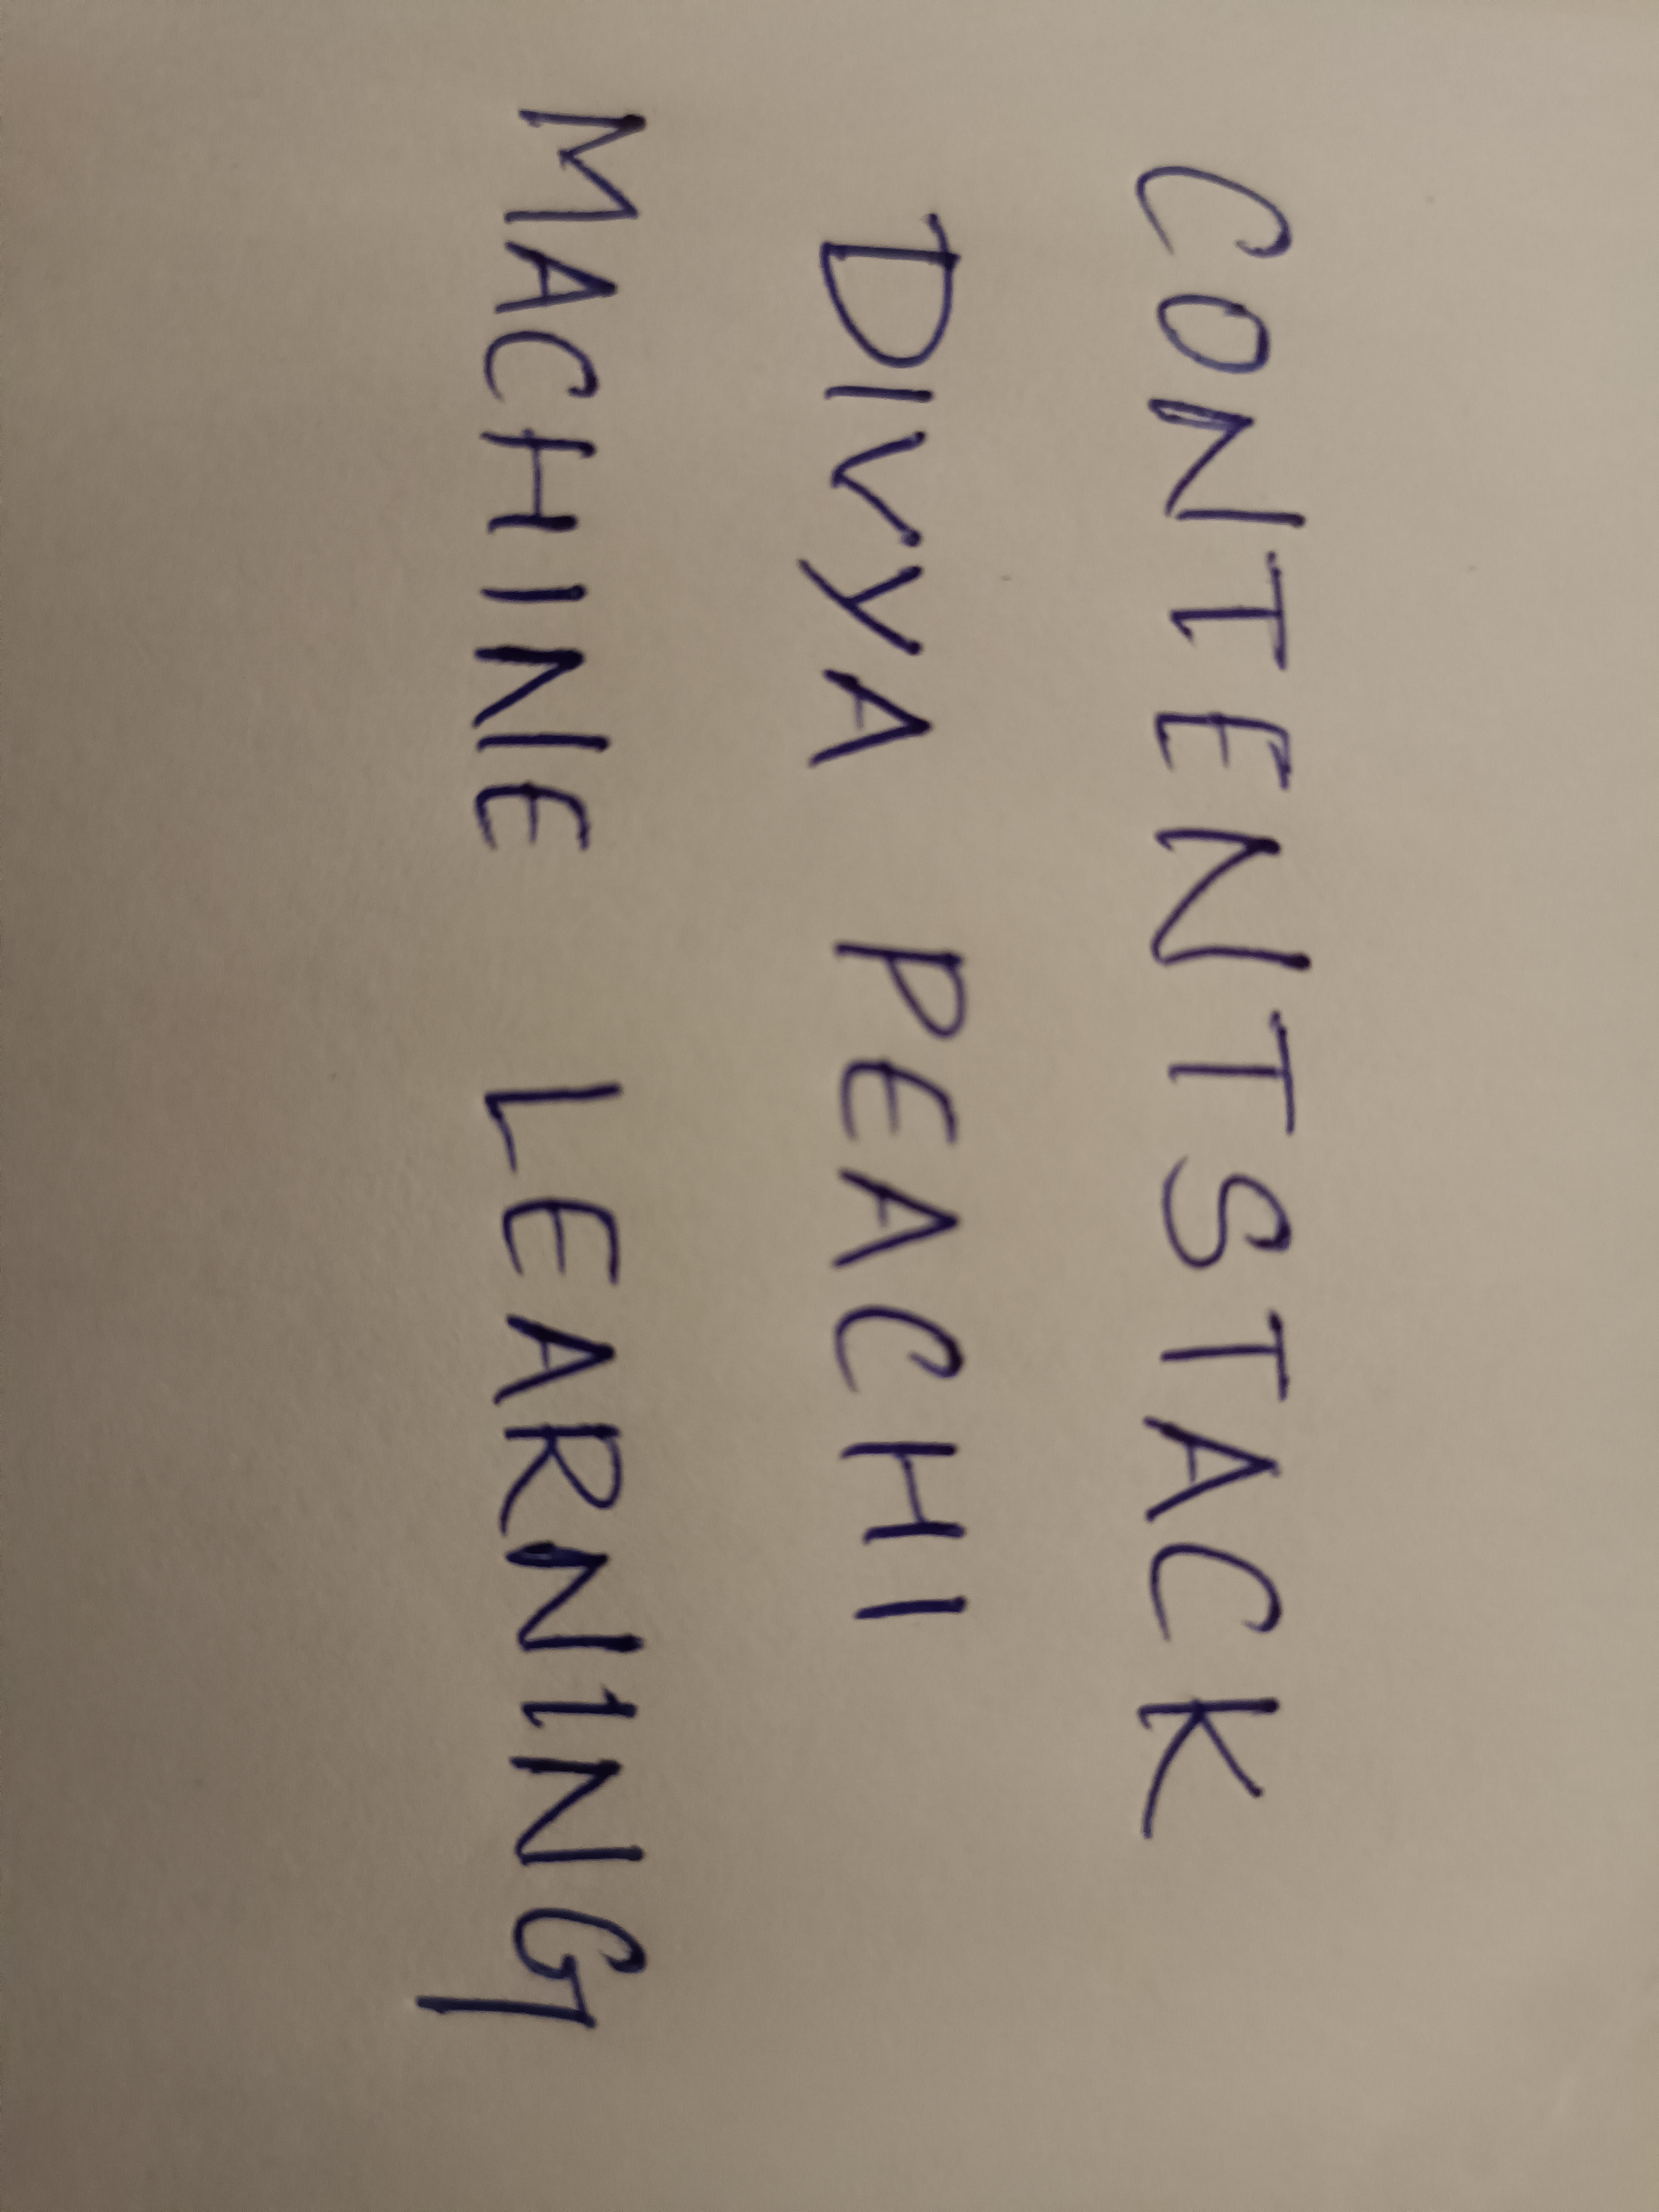 CONTENTSTACK
DIVYA PEACHI
MACHINE LEARNING